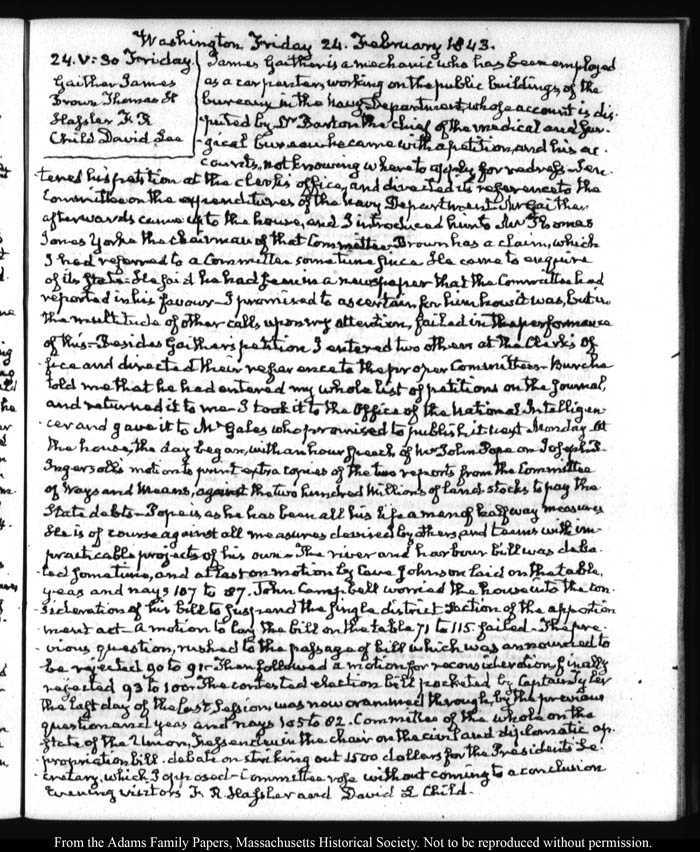 Washington Friday 24. February 1843.
24. V:30 Friday.
Gaither James
Brown Thomas H
Hassler F. R
Child David Lee
James Gaither is a mechanic who has been employed
as a carpenter, working on the public buildings of the
bureaux in the Navy Department, whose account is dis-
puted by Dr Barton the chief of the medical and Sur-
gical bureau he came with a petition, and his ac-
counts, not knowing where to apply for redress. I en-
tered his petition at the clerk's office, and directed its reference to the
Committee on the expenditures of the Navy Department. Mr Gaither
afterwards came up to the house, and I introduced him to Mr Thomas
Jones Yorke the chairman of that Committee. Brown has a claim, which
I had referred to a Committee sometime since. He came to enquire
of its state. He said he had seen in a newspaper that the Committee had
reported in his favour. I promised to ascertain for him how it was, but in
the multitude of other calls upon my attention, failed in the performance
of this. Besides Gaither's petition I entered two others at the Clerk's of-
fice and directed their reference to the proper Committees. Burche
told me that he had entered my whole list of petitions on the Journal,
and returned it to me. I took it to the Office of the National Intelligen-
cer and gave it to Mr Gales who promised to publish it next Monday. At
the house, the day began, with an hour speech of Mr John Pope on Joseph R.
Ingersoll's motion to print extra copies of the two reports from the Committee
of Ways and Means, against the two hundred Millions of land-stocks to pay the
State debts. Pope is as he has been all his life a man of half way measures
He is of course against all measures devised by others, and teems with im-
practicable projects of his own. The river and harbour bill was deba-
ted sometime, and at last on motion by Cave Johnson laid on the table,
yeas and nays 107 to 87. John Campbell worried the house into the con-
sideration of his bill to suspend the single district Section of the apportion
ment act. A motion to lay the bill on the table 71 to 115 failed. The pre-
vious question, rushed to the passage of bill which was announced to
be rejected 90 to 91. Then followed a motion for reconsideration, finally
rejected 93 to 100. The contested election bill pocketed by Captain Tyler
the last day of the last Session, was now crammed through, by the previous
question and yeas and nays 105 to 82. Committee of the whole on the
state of the Union, Fessenden in the chair on the civil and diplomatic ap-
propriation bill. debate on striking out 1500 dollars for the President's Se-
cretary, which I opposed. Committee rose without coming to a conclusion
Evening visitors F. R Hassler and David L Child.
From the Adams Family Papers, Massachusetts Historical Society. Not to be reproduced without permission.